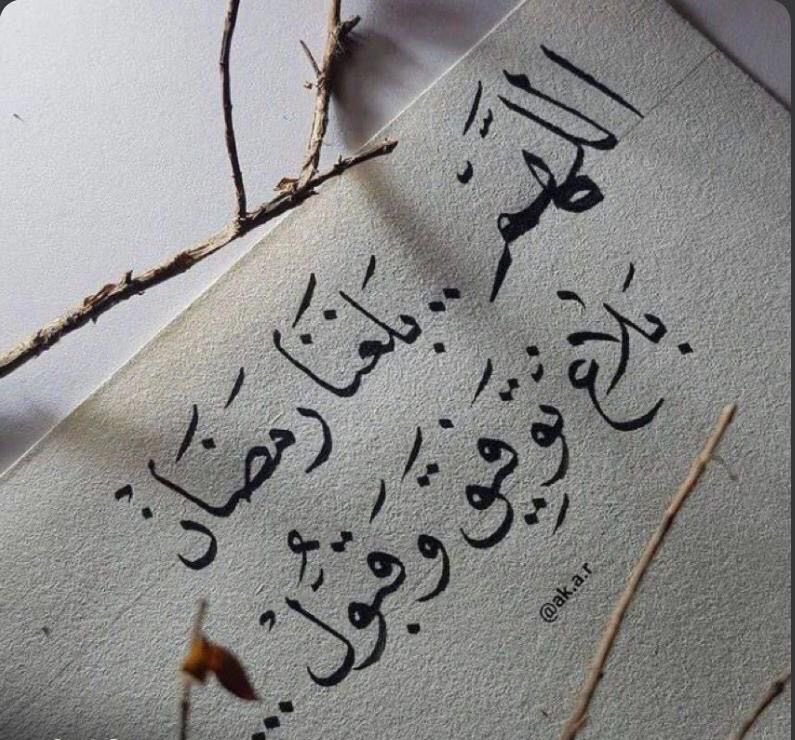 اللَّهم .. بلغنَا رمضَان
بَلاغ توَفيق وَقبُول ...
@ak.a.r